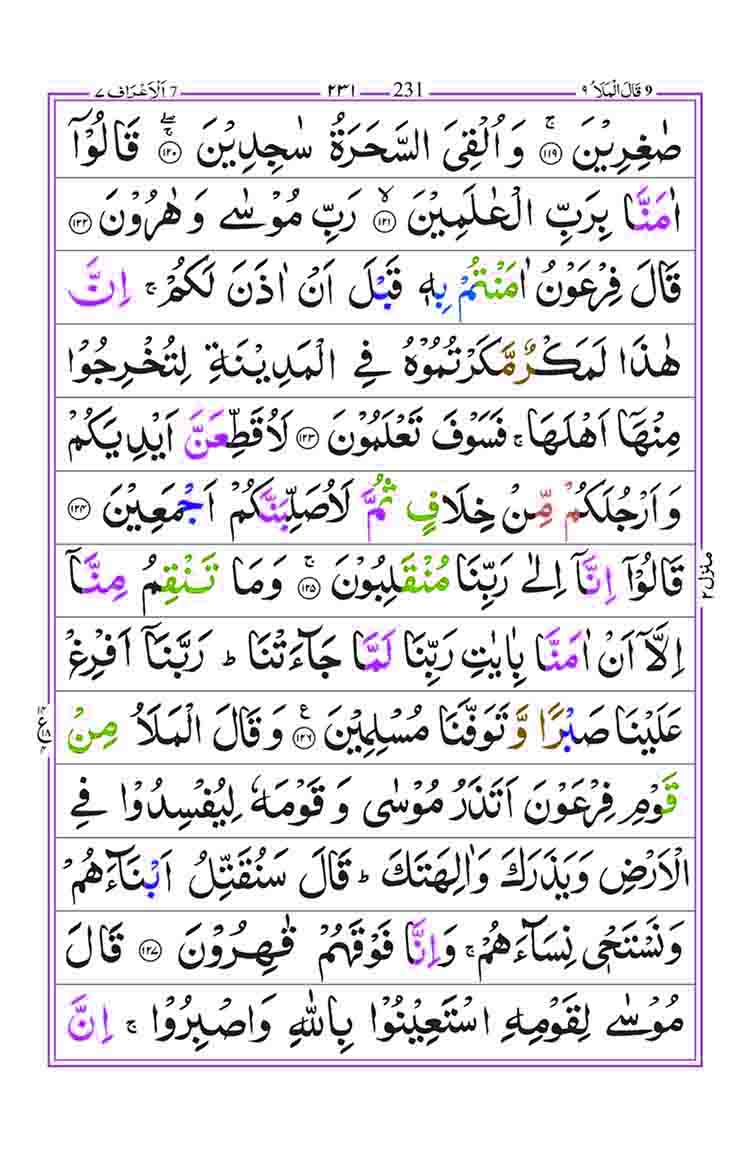 9 قَالَ الْمَلَاُ ٩ 231 ٢٣١ 7 اَلْاَعْرَاف ٧
صٰغِرِيْنَ ۚ ﴿۱۱۹﴾ وَ اُلْقِيَ السَّحَرَةُ سٰجِدِيْنَ ۚۖ ﴿۱۲۰﴾ قَالُوْۤا
اٰمَنَّا بِرَبِّ الْعٰلَمِيْنَ ۙ ﴿۱۲۱﴾ رَبِّ مُوْسٰى وَ هٰرُوْنَ ﴿۱۲۲﴾
قَالَ فِرْعَوْنُ اٰمَنْتُمْ بِهٖ قَبْلَ اَنْ اٰذَنَ لَكُمْ ۚ اِنَّ
هٰذَا لَمَكْرٌ مَّكَرْتُمُوْهُ فِي الْمَدِيْنَةِ لِتُخْرِجُوْا
مِنْهَاۤ اَهْلَهَا ۚ فَسَوْفَ تَعْلَمُوْنَ ﴿۱۲۳﴾ لَاُقَطِّعَنَّ اَيْدِيَكُمْ
وَ اَرْجُلَكُمْ مِّنْ خِلَافٍ ثُمَّ لَاُصَلِّبَنَّكُمْ اَجْمَعِيْنَ ﴿۱۲۴﴾
قَالُوْۤا اِنَّاۤ اِلٰى رَبِّنَا مُنْقَلِبُوْنَ ۚ ﴿۱۲۵﴾ وَمَا تَنْقِمُ مِنَّاۤ
اِلَّاۤ اَنْ اٰمَنَّا بِاٰيٰتِ رَبِّنَا لَمَّا جَآءَتْنَا ؕ رَبَّنَاۤ اَفْرِغْ
عَلَيْنَا صَبْرًا وَّ تَوَفَّنَا مُسْلِمِيْنَ ﴿۱۲۶﴾ۧ وَ قَالَ الْمَلَاُ مِنْ
قَوْمِ فِرْعَوْنَ اَتَذَرُ مُوْسٰى وَ قَوْمَهٗ لِيُفْسِدُوْا فِي
الْاَرْضِ وَيَذَرَكَ وَاٰلِهَتَكَ ؕ قَالَ سَنُقَتِّلُ اَبْنَآءَهُمْ
وَنَسْتَحْيٖ نِسَآءَهُمْ ۚ وَاِنَّا فَوْقَهُمْ قٰهِرُوْنَ ﴿۱۲۷﴾ قَالَ
مُوْسٰى لِقَوْمِهِ اسْتَعِيْنُوْا بِاللّٰهِ وَاصْبِرُوْا ۚ اِنَّ
منزل ٢
ع ١٨